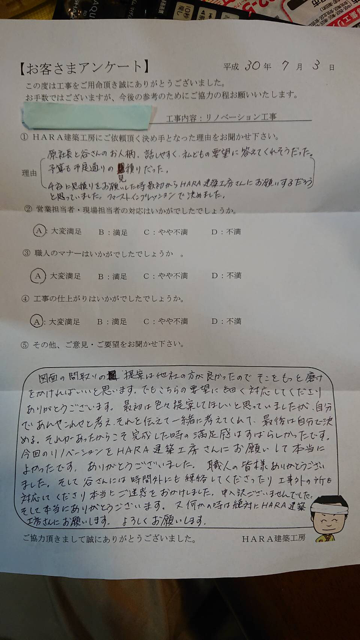 【お客さまアンケート】
平成 30年 7月 3日
この度は工事をご用命頂き誠にありがとうございました。
お手数ではございますが、今後の参考のためにご協力の程お願いいたします。
工事内容：リノベーション工事
① HARA建築工房にご依頼頂く決め手となった理由をお聞かせ下さい。
原社長と谷さんのお人柄、話しやすく、私どもの要望に答えてくれそうだった。
理由
予算も予定通りの見積りだった。
4社に見積りをお願いした時最初からHARA建築工房さんにお願いするだろう
と思っていました。ファーストインプレッションで決めました。
② 営業担当者・現場担当者の対応はいかがでしたでしょうか。
A：大変満足 B：満足 C：やや不満 D：不満
③ 職人のマナーはいかがでしたでしょうか 。
A：大変満足 B：満足 C：やや不満 D：不満
④ 工事の仕上がりはいかがでしたでしょうか。
A：大変満足 B：満足 C：やや不満 D：不満
⑤ その他、ご意見・ご要望をお聞かせ下さい。
図面の間取りの 提案は他社の方が良かったので そこをもっと磨け
をかければいいと思います。でもこちらの要望に細く対応してくださり
ありがとうございます。最初は色々提案してほしいと思っていましたが、自分
であれやこれやと考え、それを伝えて一緒に考えてくれて、最後は自分で決
める。それがあったからこそ完成した時の満足感はすばらしかったです。
今回のリノベーションをHARA建築工房さんにお願いして本当に
よかったです。ありがとうございました。職人の皆様ありがとうござい
ました。そして谷さんには時間外にも連絡してくださったり 工事外の件も
対応してくださり本当にご迷惑をおかけしました。申し訳ございませんでした。
そして本当にありがとうございます。又何かの時は絶対にHARA建築
工房さんにお願いします。よろしくお願いします。
ご協力頂きまして誠にありがとうございました。
HARA建築工房